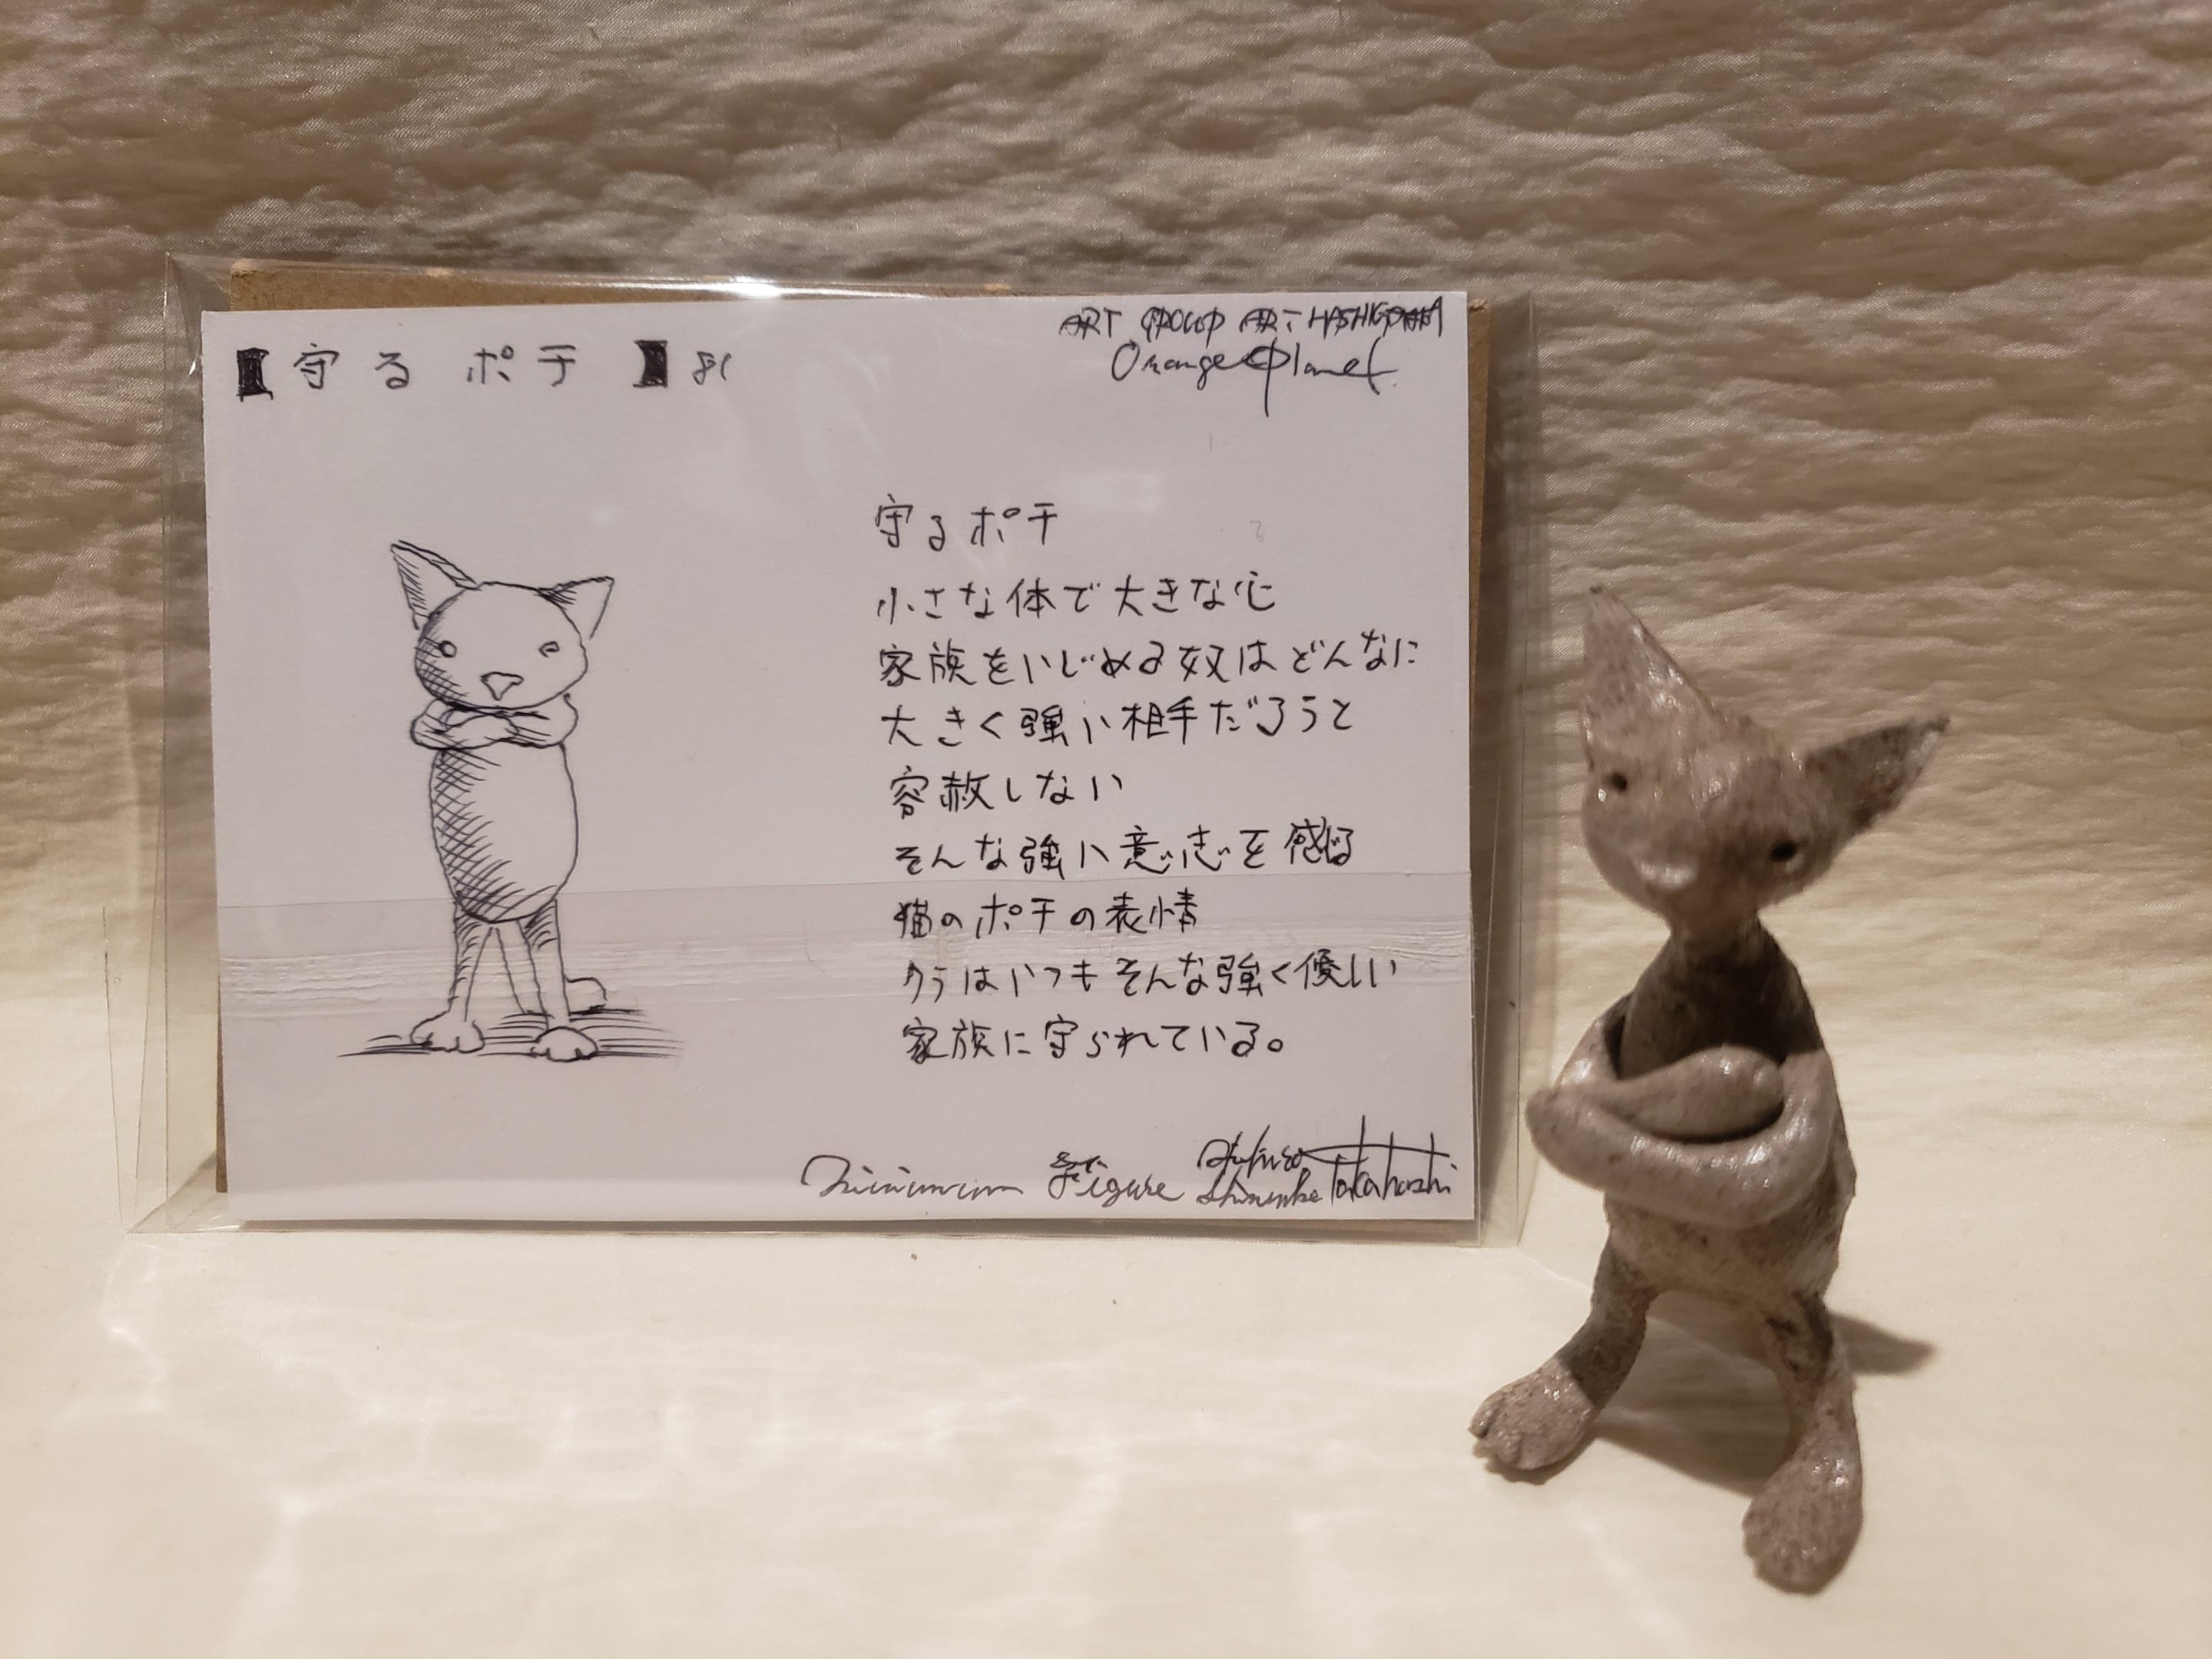 【守るポチ】81
ART GROUP ART HASHIGAMI
Orange Planet
守るポチ
小さな体で大きな心
家族をいじめる奴はどんなに
大きく強い相手だろうと
容赦しない
そんな強い意志を感じる
猫のポチの表情
クラはいつもそんな強く優しい
家族に守られている。
Minimum Figure
Takahashi